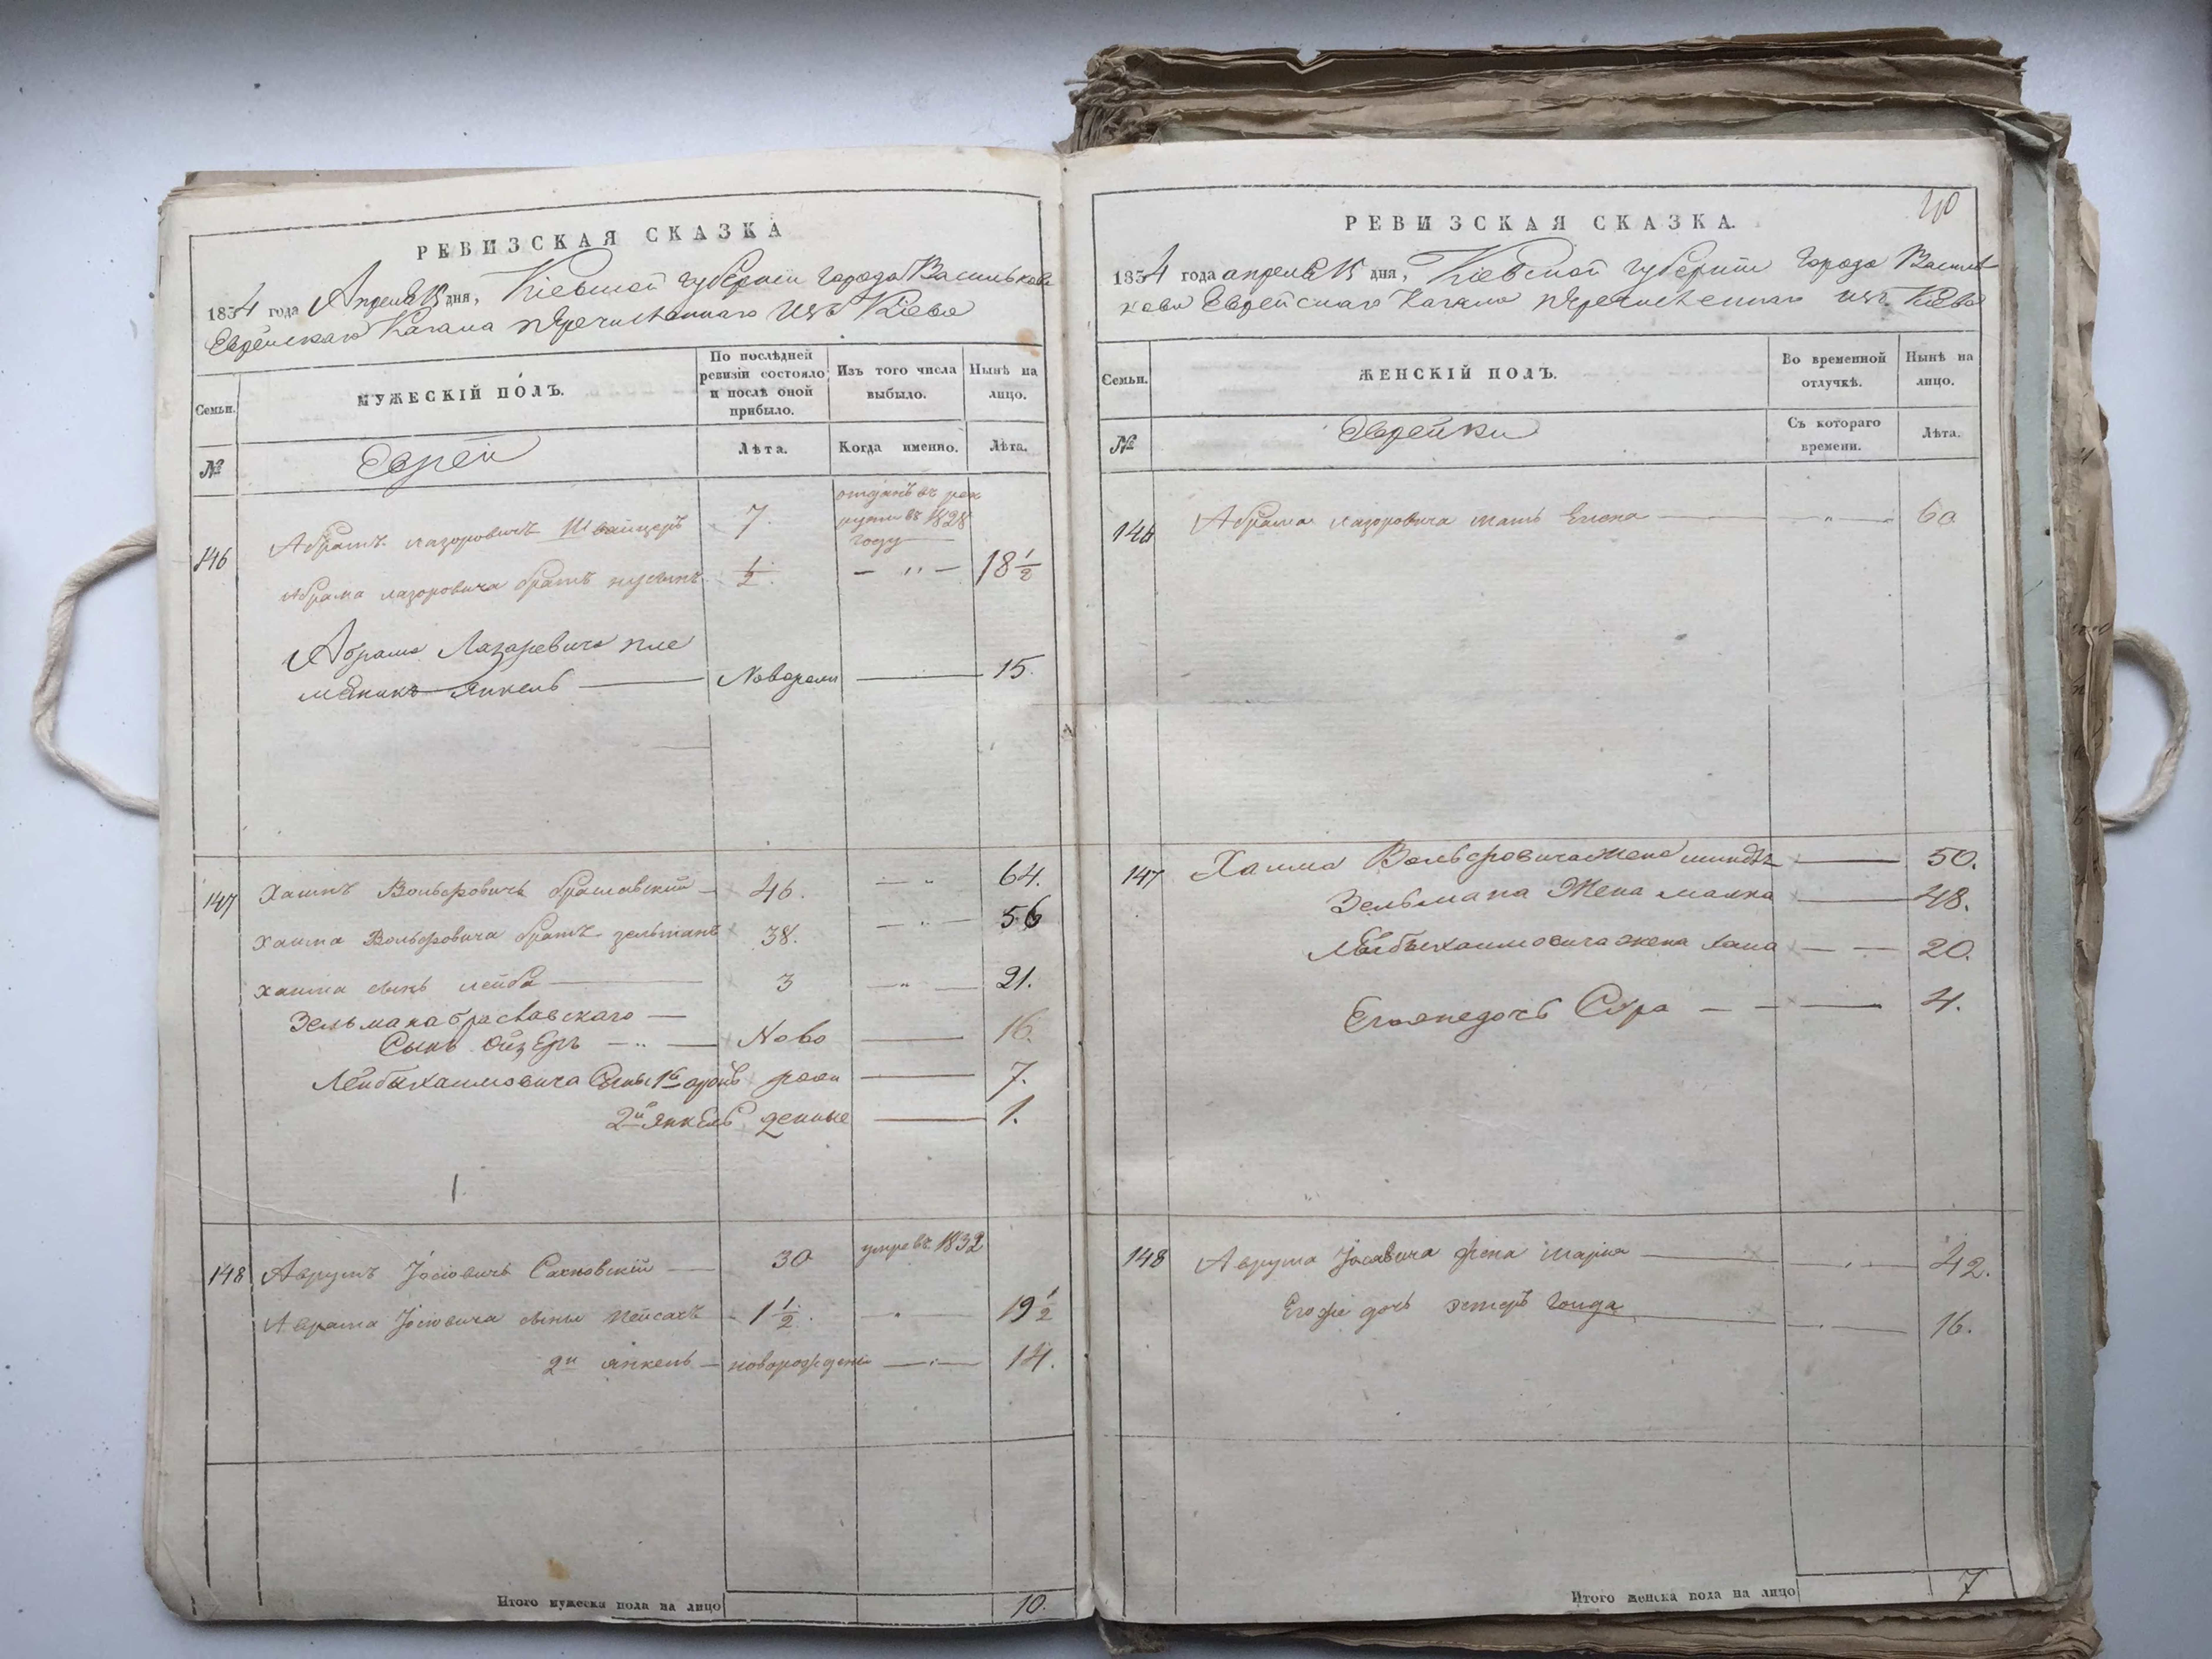 РЕВИЗСКАЯ СКАЗКА
1834 года Апреля 15 дня, Кіевской губерніи города Василькова
Еврейскаго Кагала перечисленнаго изъ Кіева
Семьи.
МУЖЕСКІЙ ПОЛЪ.
По послѣдней ревизіи состояло и послѣ оной прибыло.
Изъ того числа выбыло.
Нынѣ на лицо.
№
Евреи
Лѣта.
Когда именно.
Лѣта.
146
Абрамъ Лазоровичъ Швайцеръ 7. отданъ въ рекруты въ 1828 году
Абрама Лазоровича братъ 1/2. — " — 18 1/2
Абрама Лазаревича пле
мѣникъ Янкель — Новорожи — 15.
147 Хаимъ Вольфовичъ браславскій — 46. — " 64.
Хаима Вольфовича братъ зельманъ 38. — " — 56
Хаима сынъ лейба — 3 — " — 21.
Зельмана браславскаго —
Сынъ Ойзеръ — " — Ново — 16.
Лейбы хаимовича Сыны 1й аронъ рож — 7.
2й Янкель денные — 1.
148 Аврумъ Іосіовичъ Сахновскій — 30 умре въ 1832
Аврама Іосіовича сыны Пейсахъ 1 1/2. " — 19 1/2
2й янкель — новорожденъ — " — 14.
Итого мужеска пола на лицо 10.
40
РЕВИЗСКАЯ СКАЗКА.
1834 года апреля 15 дня, Кіевской губерніи города Василь-
кова Еврейскаго Кагала перечисленнаго изъ Кіева
Семьи.
ЖЕНСКІЙ ПОЛЪ.
Во временной отлучкѣ.
Нынѣ на лицо.
№
Еврейки
Съ котораго времени.
Лѣта.
146 Абрама Лазоровича мать Елена — " — 60
147 Хаима Вольфовича жена миндля — 50.
Зельмана Жена малка — 48.
Лейбы хаимовича жена хана — — 20.
Его же дочь Сура — — 4.
148 Аврума Іосіовича жена марія — " — 42.
Его же дочь эстеръ голда — . — 16.
Итого женска пола на лицо 7